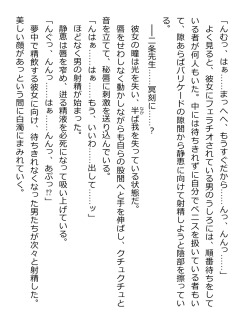 「んむっ……はぁ　まっへへ、もうすぐだから……んっ、んんっ…」
よく見ると、彼女にフェラチオされている男のうしろには、順番待ちをして
いる者が何人もいた。中には待ちきれずに自分でペニスを扱いている者もい
て、隙あらばバリケードの隙間から静恵に向けて射精しようと陰部を擦ってい
る。
――二条先生……冥刻に……？
彼女の瞳は光を失い、半ば我を失っている状態だ。
唇をせわしなく動かしながらも自らの股間へと手を伸ばし、クチュクチュと
音を立てて、秘唇に刺激を送り込んでいる。
「んむっ、はぁ……もう、いいわ、出して……ッ」
ほどなく男の射精が始まった。
静恵は唇を窄め、迸る精液を必死になって吸い上げている。
「んぐっ、んんっ……はぁっ……んんっ、あぶっ!?」
夢中で精飲する彼女に向け、待ちきれなくなった男たちが次々と射精した。
美しい顔があっという間に白濁にまみれていく。